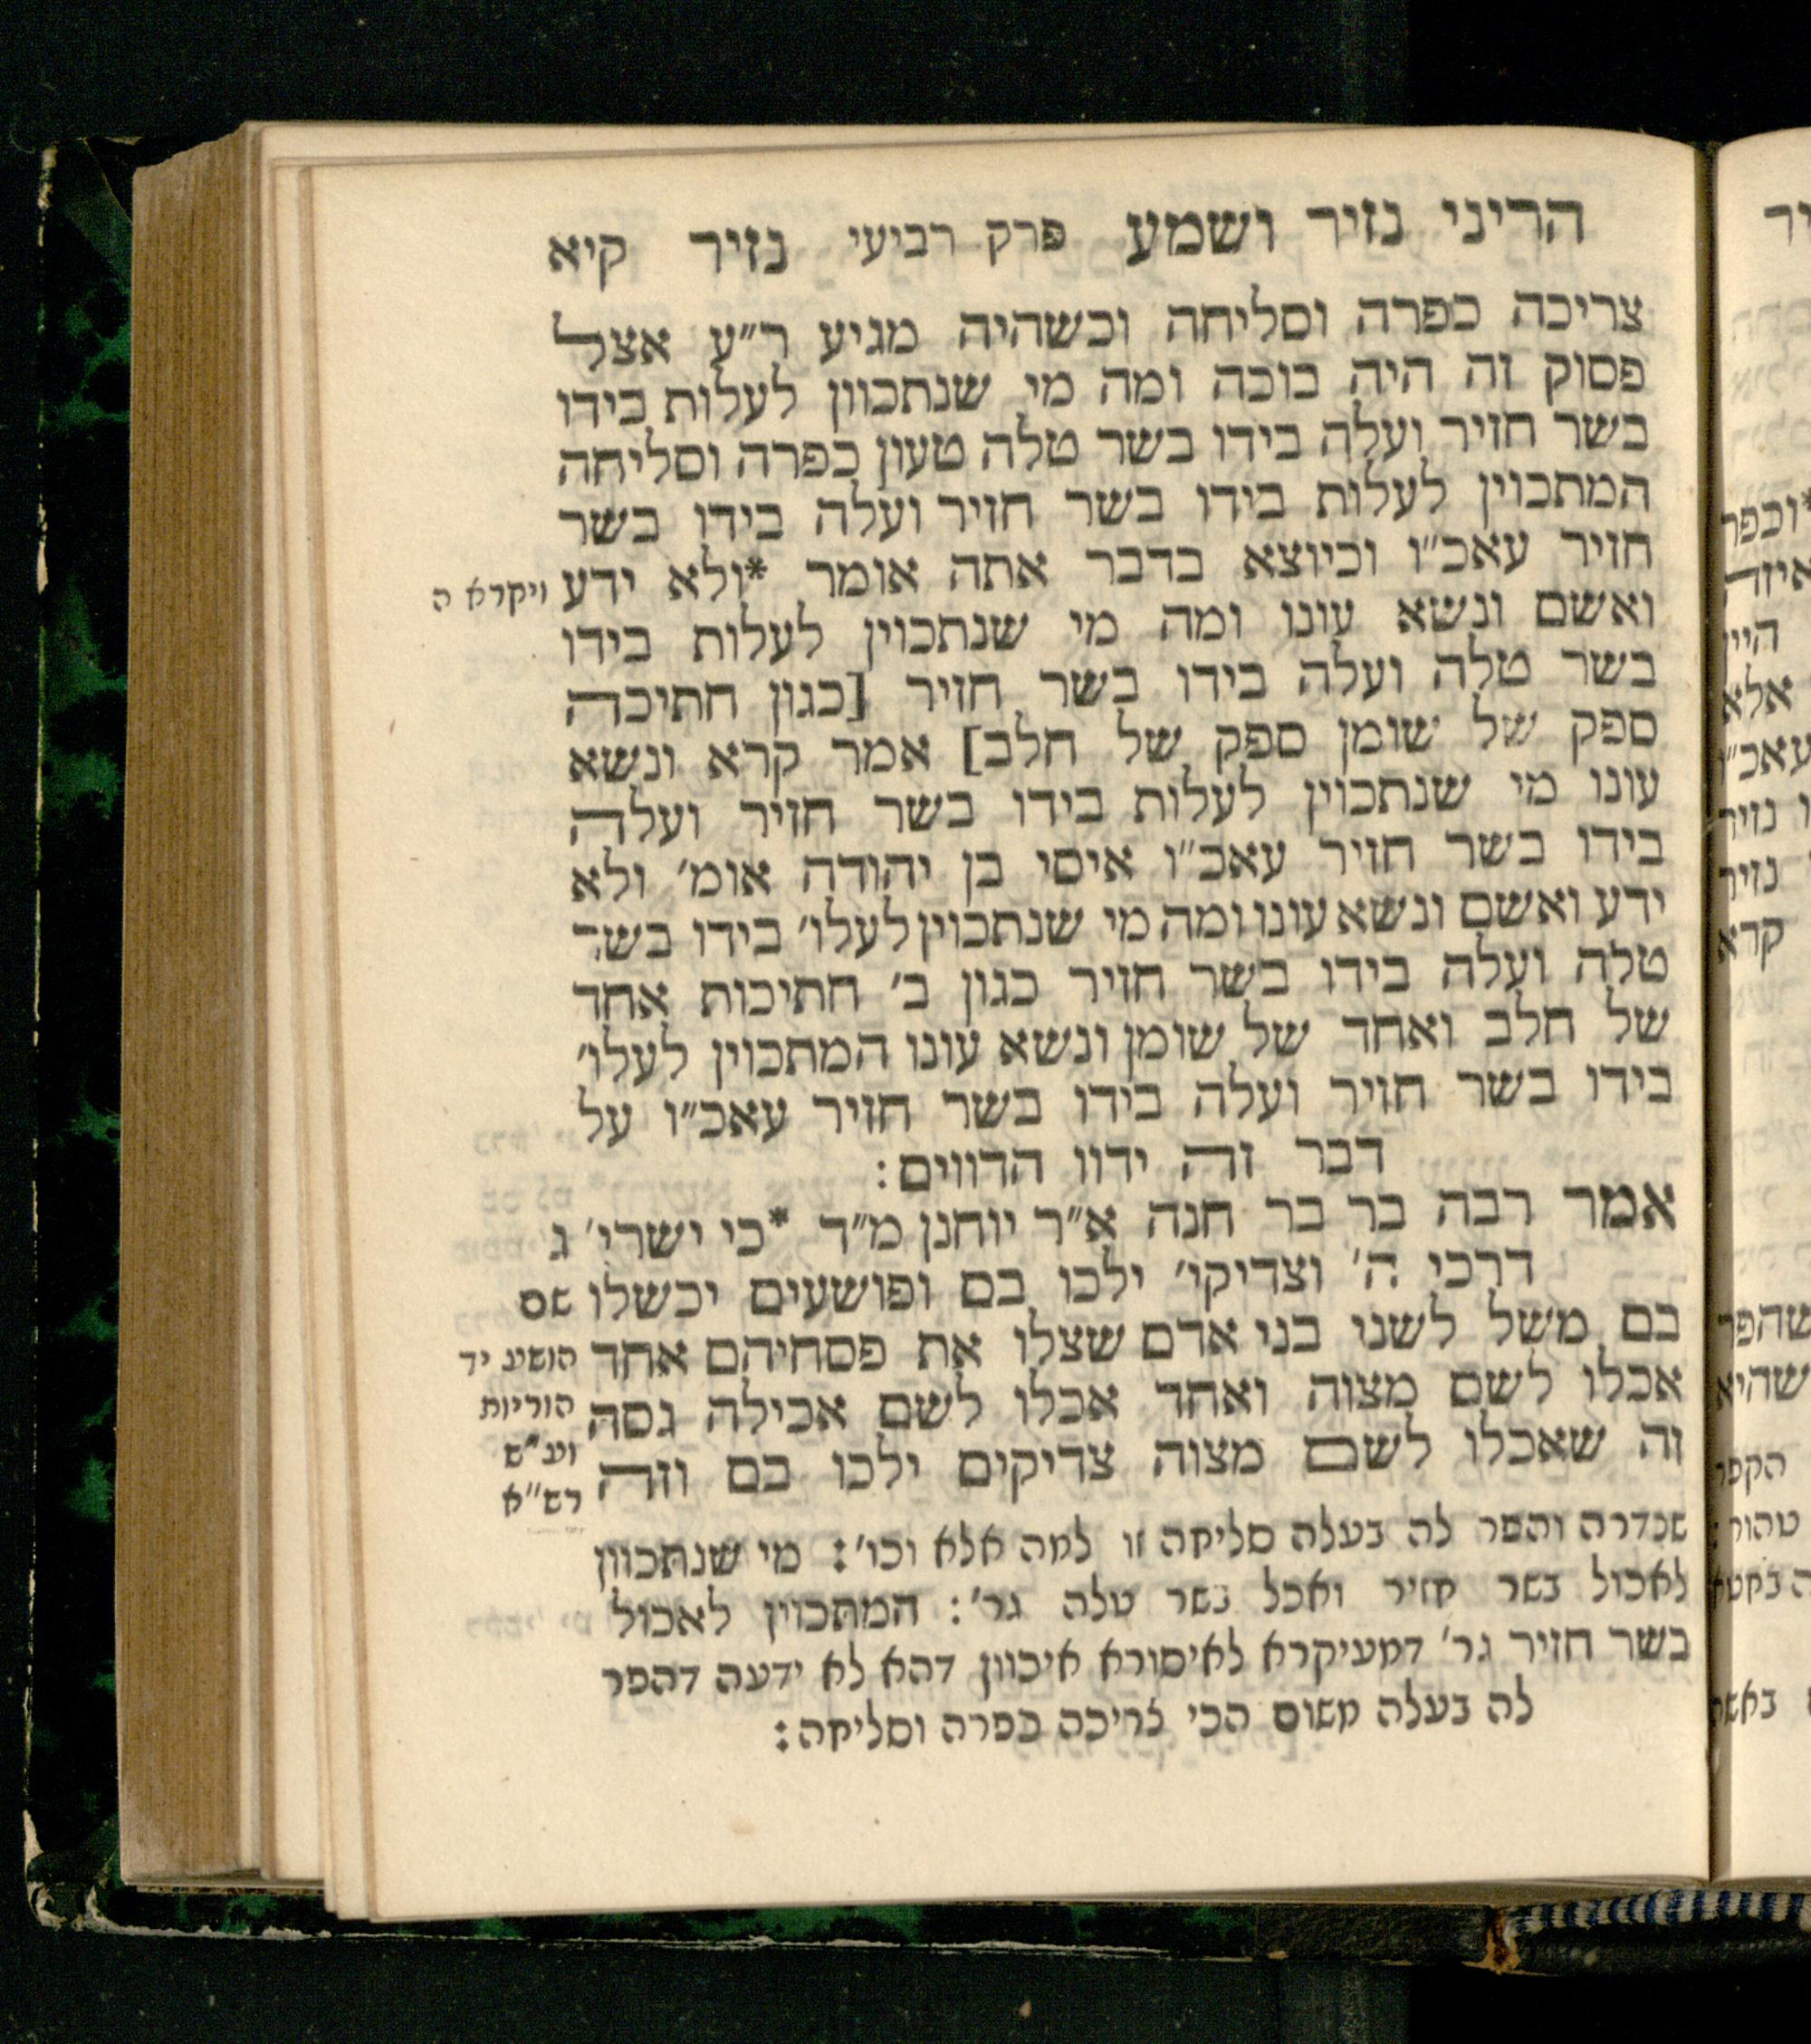 הריני נזיר ושמע פרק רביעי נזיר קיא
צריכה כפרה וסליחה וכשהיה מגיע ר״ע אצל
פסוק זה היה בוכה ומה מי שנתכוון לעלות בידו
בשר חזיר ועלה בידו בשר טלה טעון כפרה וסליחה
המתכוין לעלות בידו בשר חזיר ועלה בידו בשר
חזיר עאכ״ו וכיוצא בדבר אתה אומר *ולא ידע
ויקרא ה
ואשם ונשא עונו ומה מי שנתכוין לעלות בידו
בשר טלה ועלה בידו בשר חזיר [כגון חתיכה
ספק של שומן ספק של חלב] אמר קרא ונשא
עונו מי שנתכוין לעלות בידו בשר חזיר ועלה
בידו בשר חזיר עאכ״ו איסי בן יהודה אומ׳ ולא
ידע ואשם ונשא עונו ומה מי שנתכוין לעלו׳ בידו בשר
טלה ועלה בידו בשר חזיר כגון ב׳ חתיכות אחד
של חלב ואחד של שומן ונשא עונו המתכוין לעלו׳
בידו בשר חזיר ועלה בידו בשר חזיר עאכ״ו על
דבר זה ידוו הדווים:
אמר רבה בר בר חנה א״ר יוחנן מ״ד *כי ישרי׳ ג
דרכי ה׳ וצדיקי׳ ילכו בם ופושעים יכשלו
שם
בם משל לשני בני אדם שצלו את פסחיהם אחד
הושע יד
אכלו לשם מצוה ואחד אכלו לשם אכילה גסה
הוריות
זה שאכלו לשם מצוה צדיקים ילכו בם וזה
וע״ש
רש״א
שנדרה והפר לה בעלה סליחה זו למה אלא וכו׳: מי שנתכוון
לאכול בשר חזיר ואכל בשר טלה גר׳: המתכוין לאכול
בשר חזיר גר׳ דמעיקרא לאיסורא איכוון דהא לא ידעה דהפר
לה בעלה משום הכי צריכה כפרה וסליחה:
יר
*וכפר
היין
אלא
עאכ״ו
נזיר
נזיר
קרא
שהפר
שהיא
הקפר
טהור: